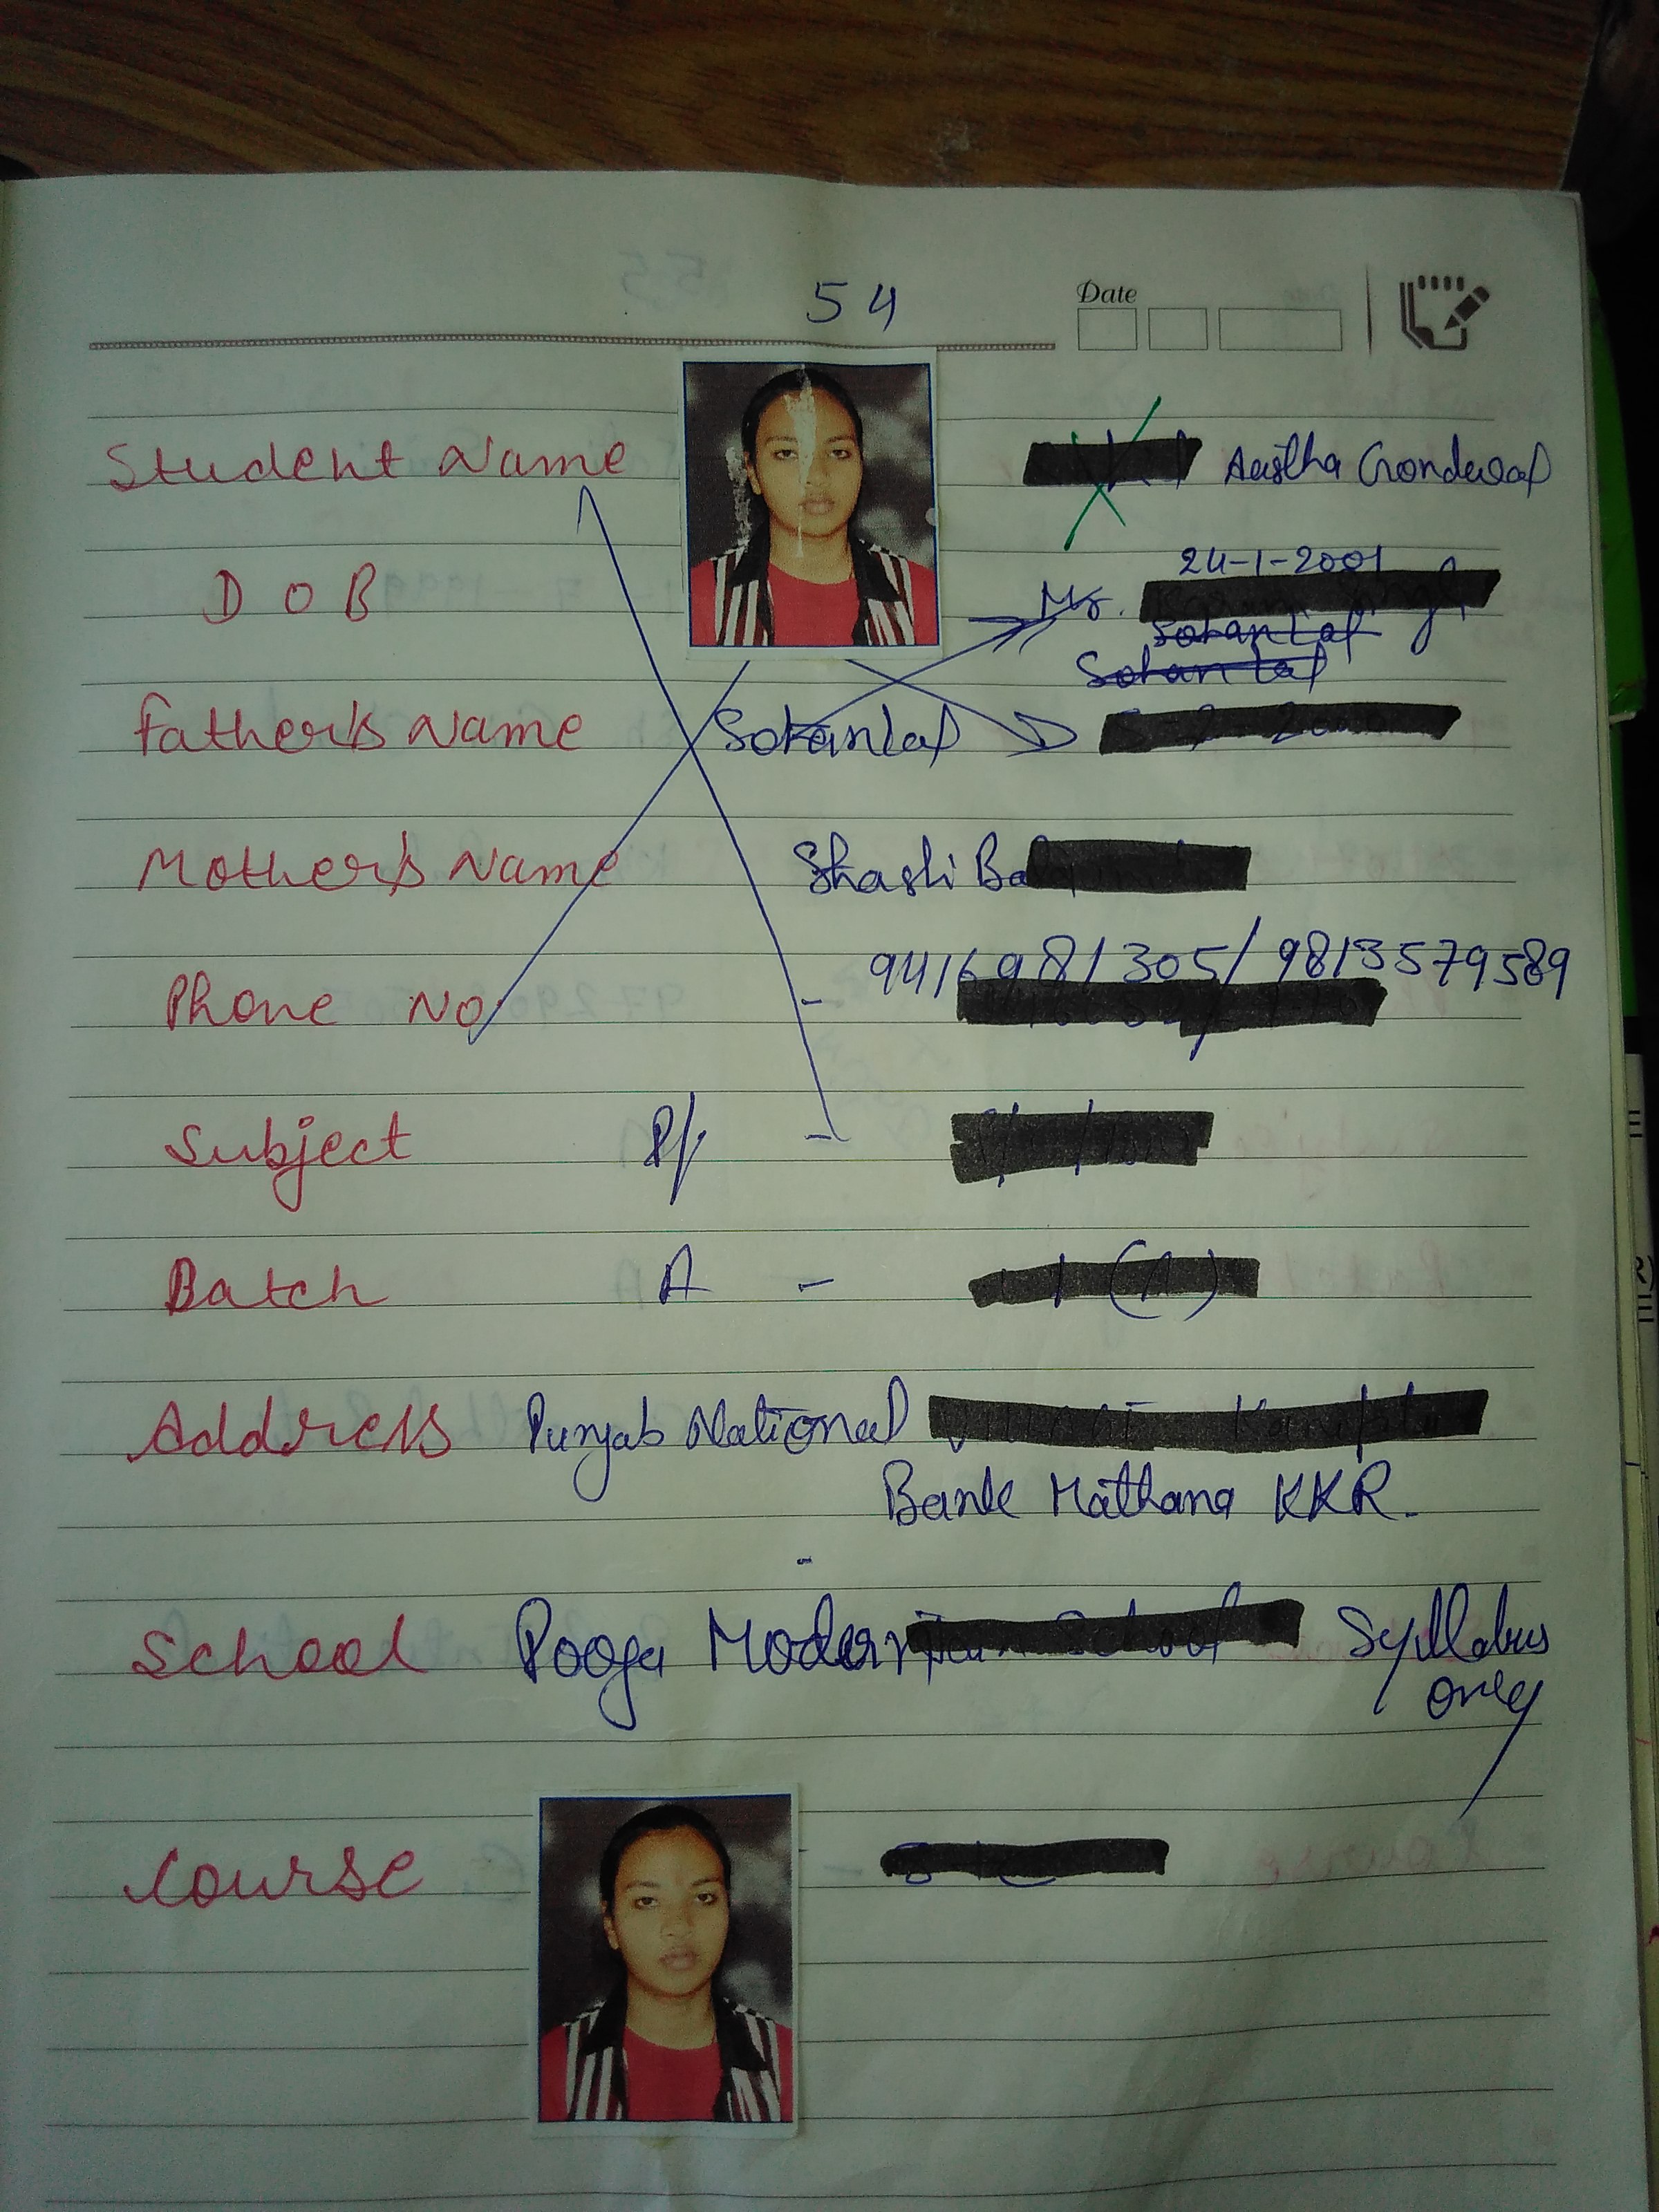 54
Date
Student Name Aastha Gondwal
24-1-2001
D O B Mr.
Sohanlal
Sohanlal
Father's Name Sohanlal
Mother's Name Shashi Bala
9416981305/9813579589
Phone No -
Subject P/ -
Batch A - (A)
Address Punjab National
Bank Mathana KKR.
-
School Pooja Modern School Syllabus
only
Course -